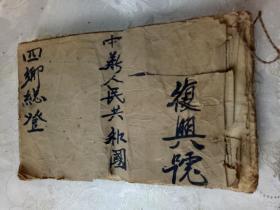 復興號
中華人民共和國
四鄉總登